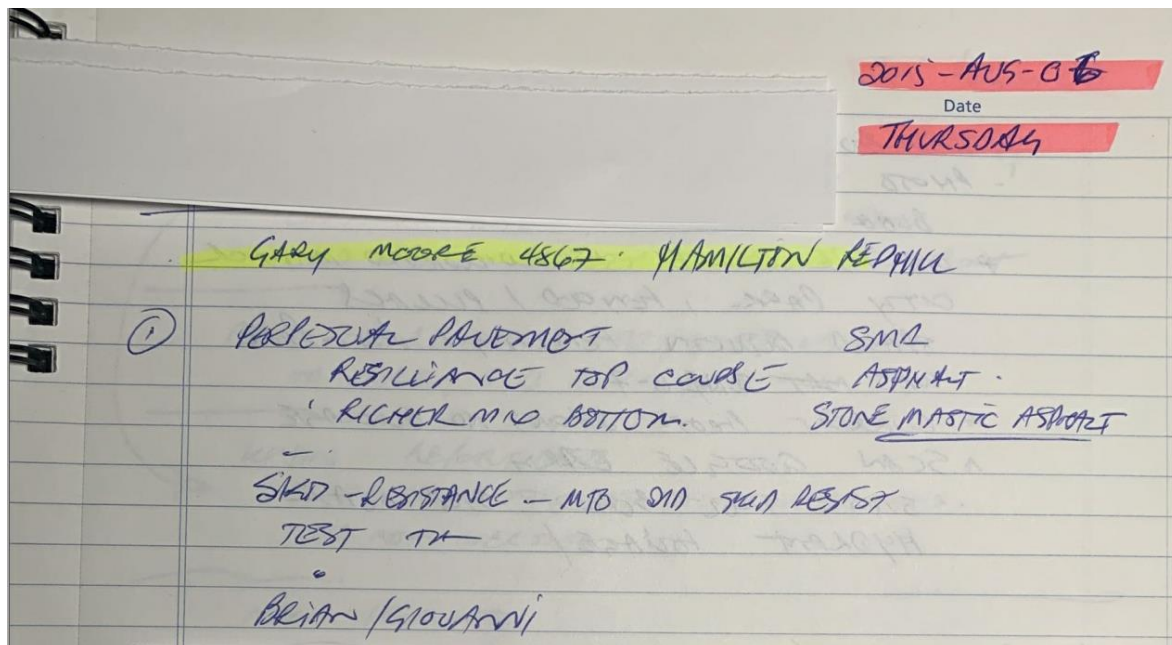 2015-AUG-06
Date
THURSDAY
GARY MOORE 4867. HAMILTON REDHILL
① PERPETUAL PAVEMENT SMA
RESILLIANCE TOP COURSE ASPHALT.
RICHER MIX BOTTOM. STONE MASTIC ASPHALT
SKID-RESISTANCE - MTO DID SKID RESIST
TEST
BRIAN / GIOVANNI